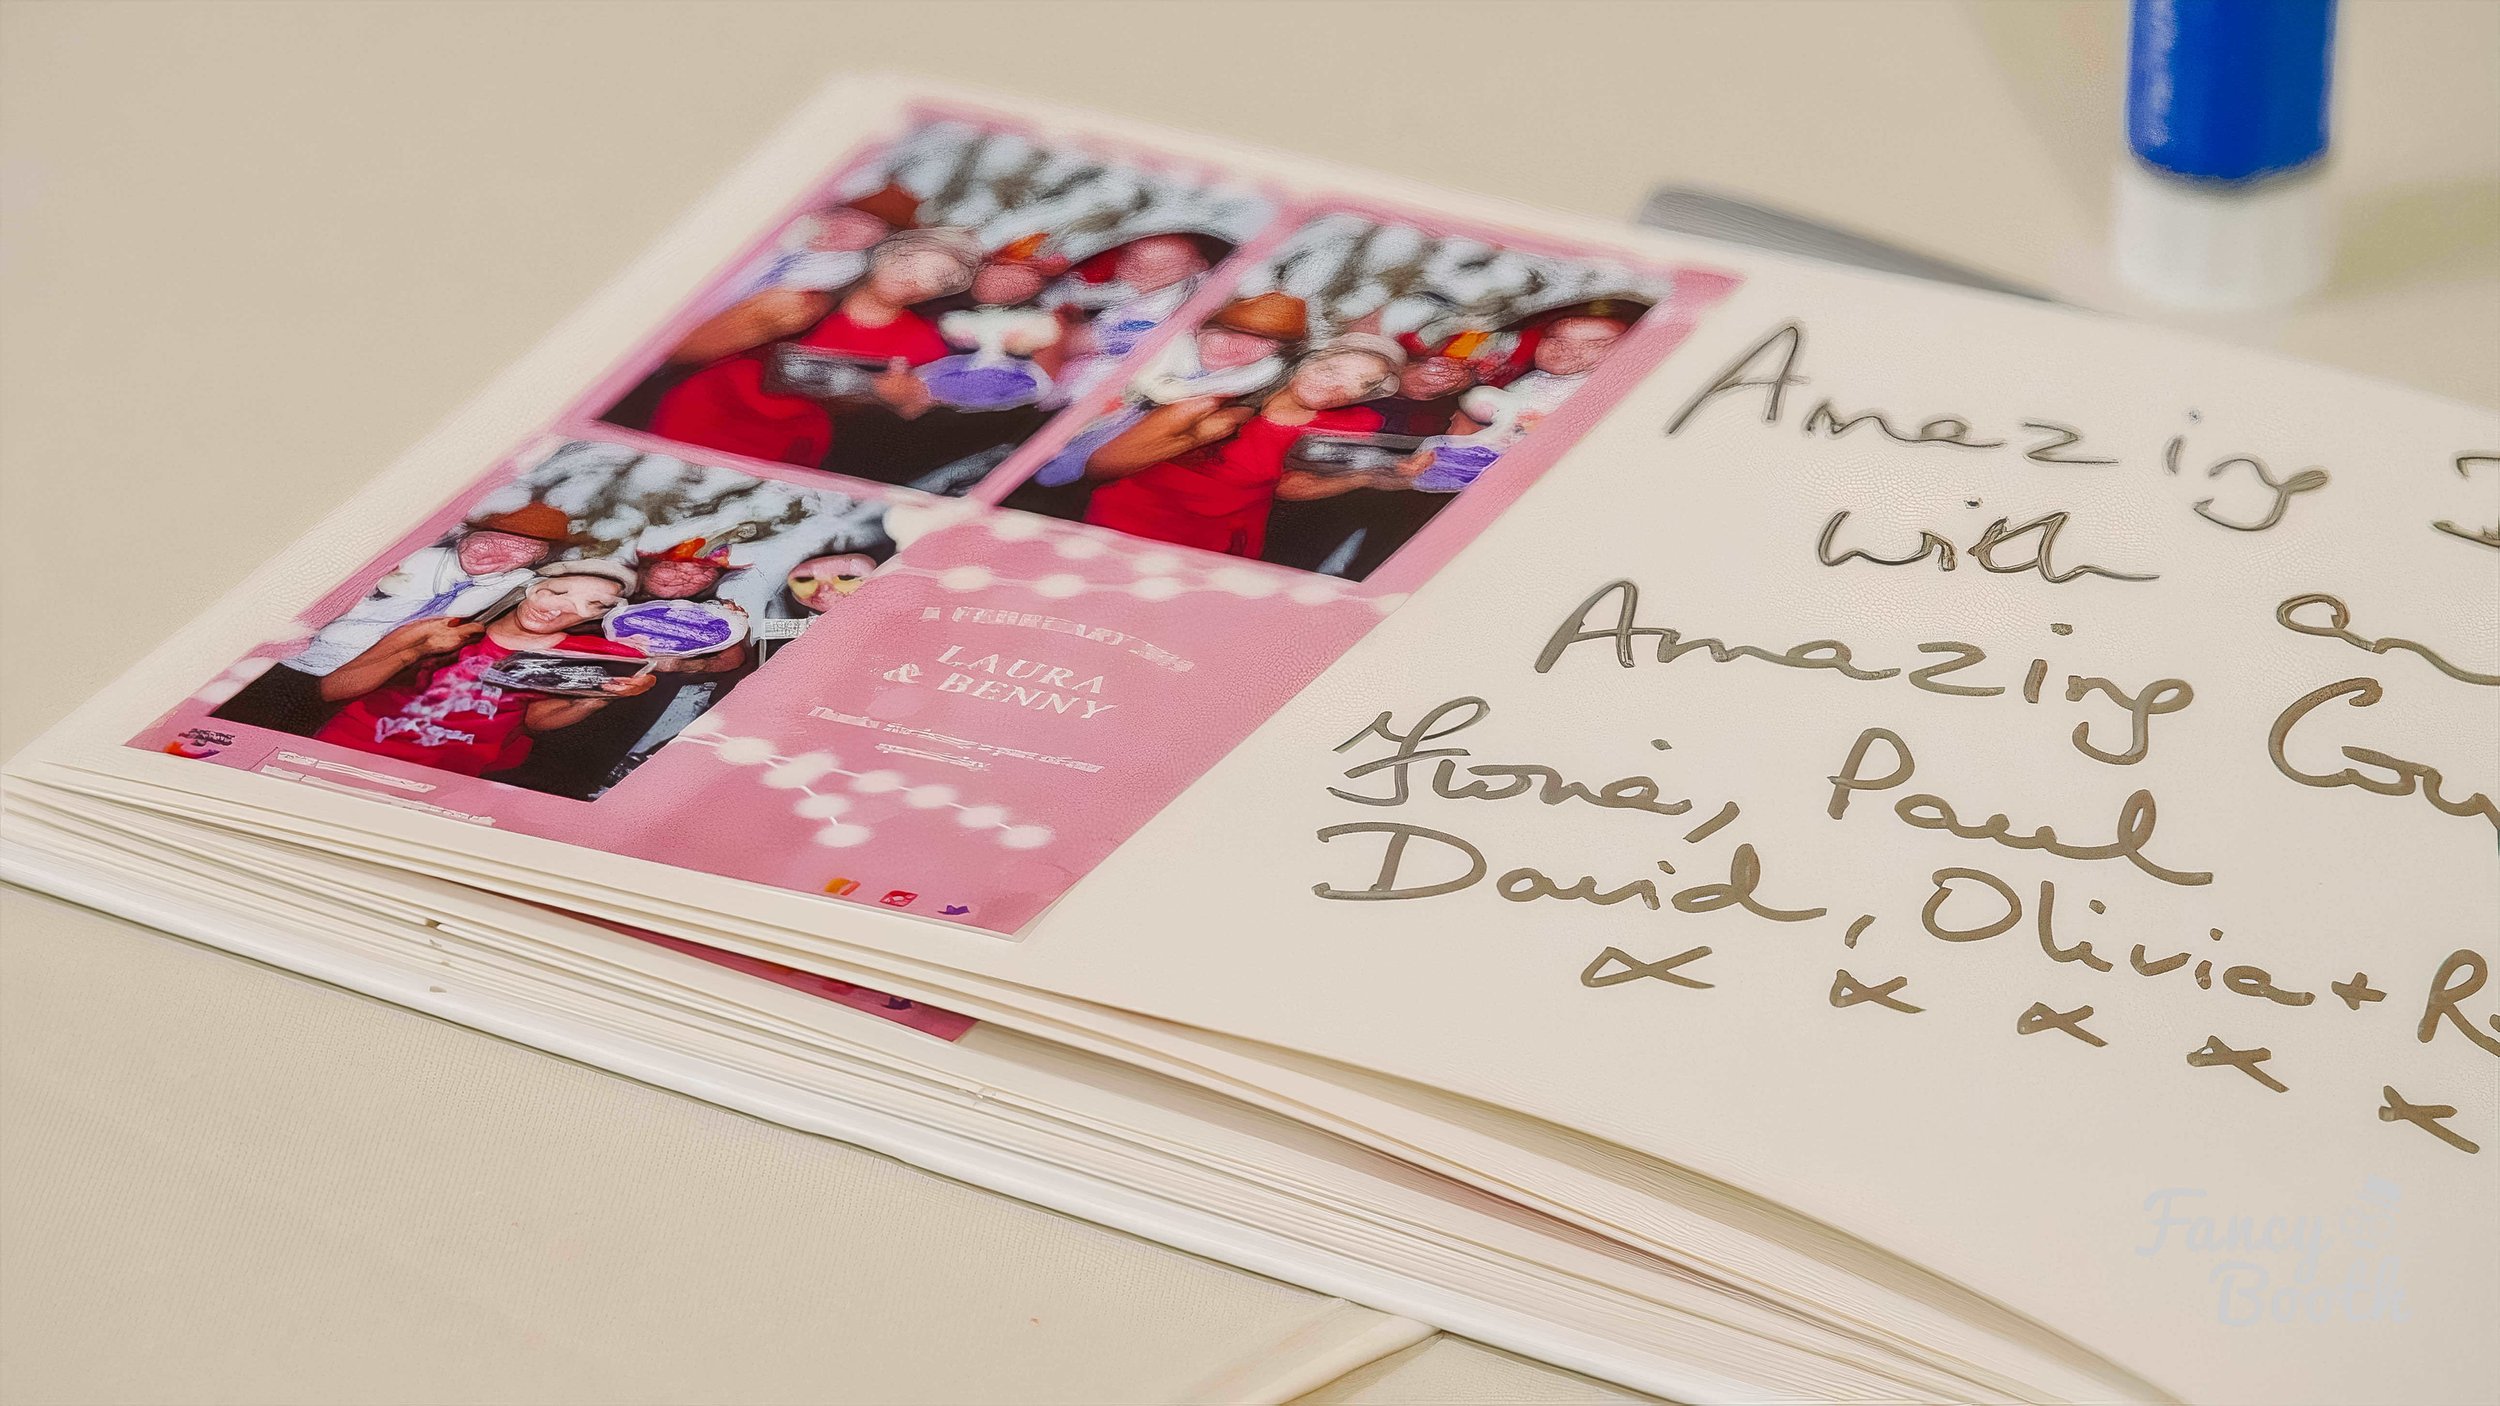 FEBRUARY
LAURA
& BENNY
Amazing
with an
Amazing
Fiona, Paul
David, Olivia +
x x x x x
Fancy
Booth